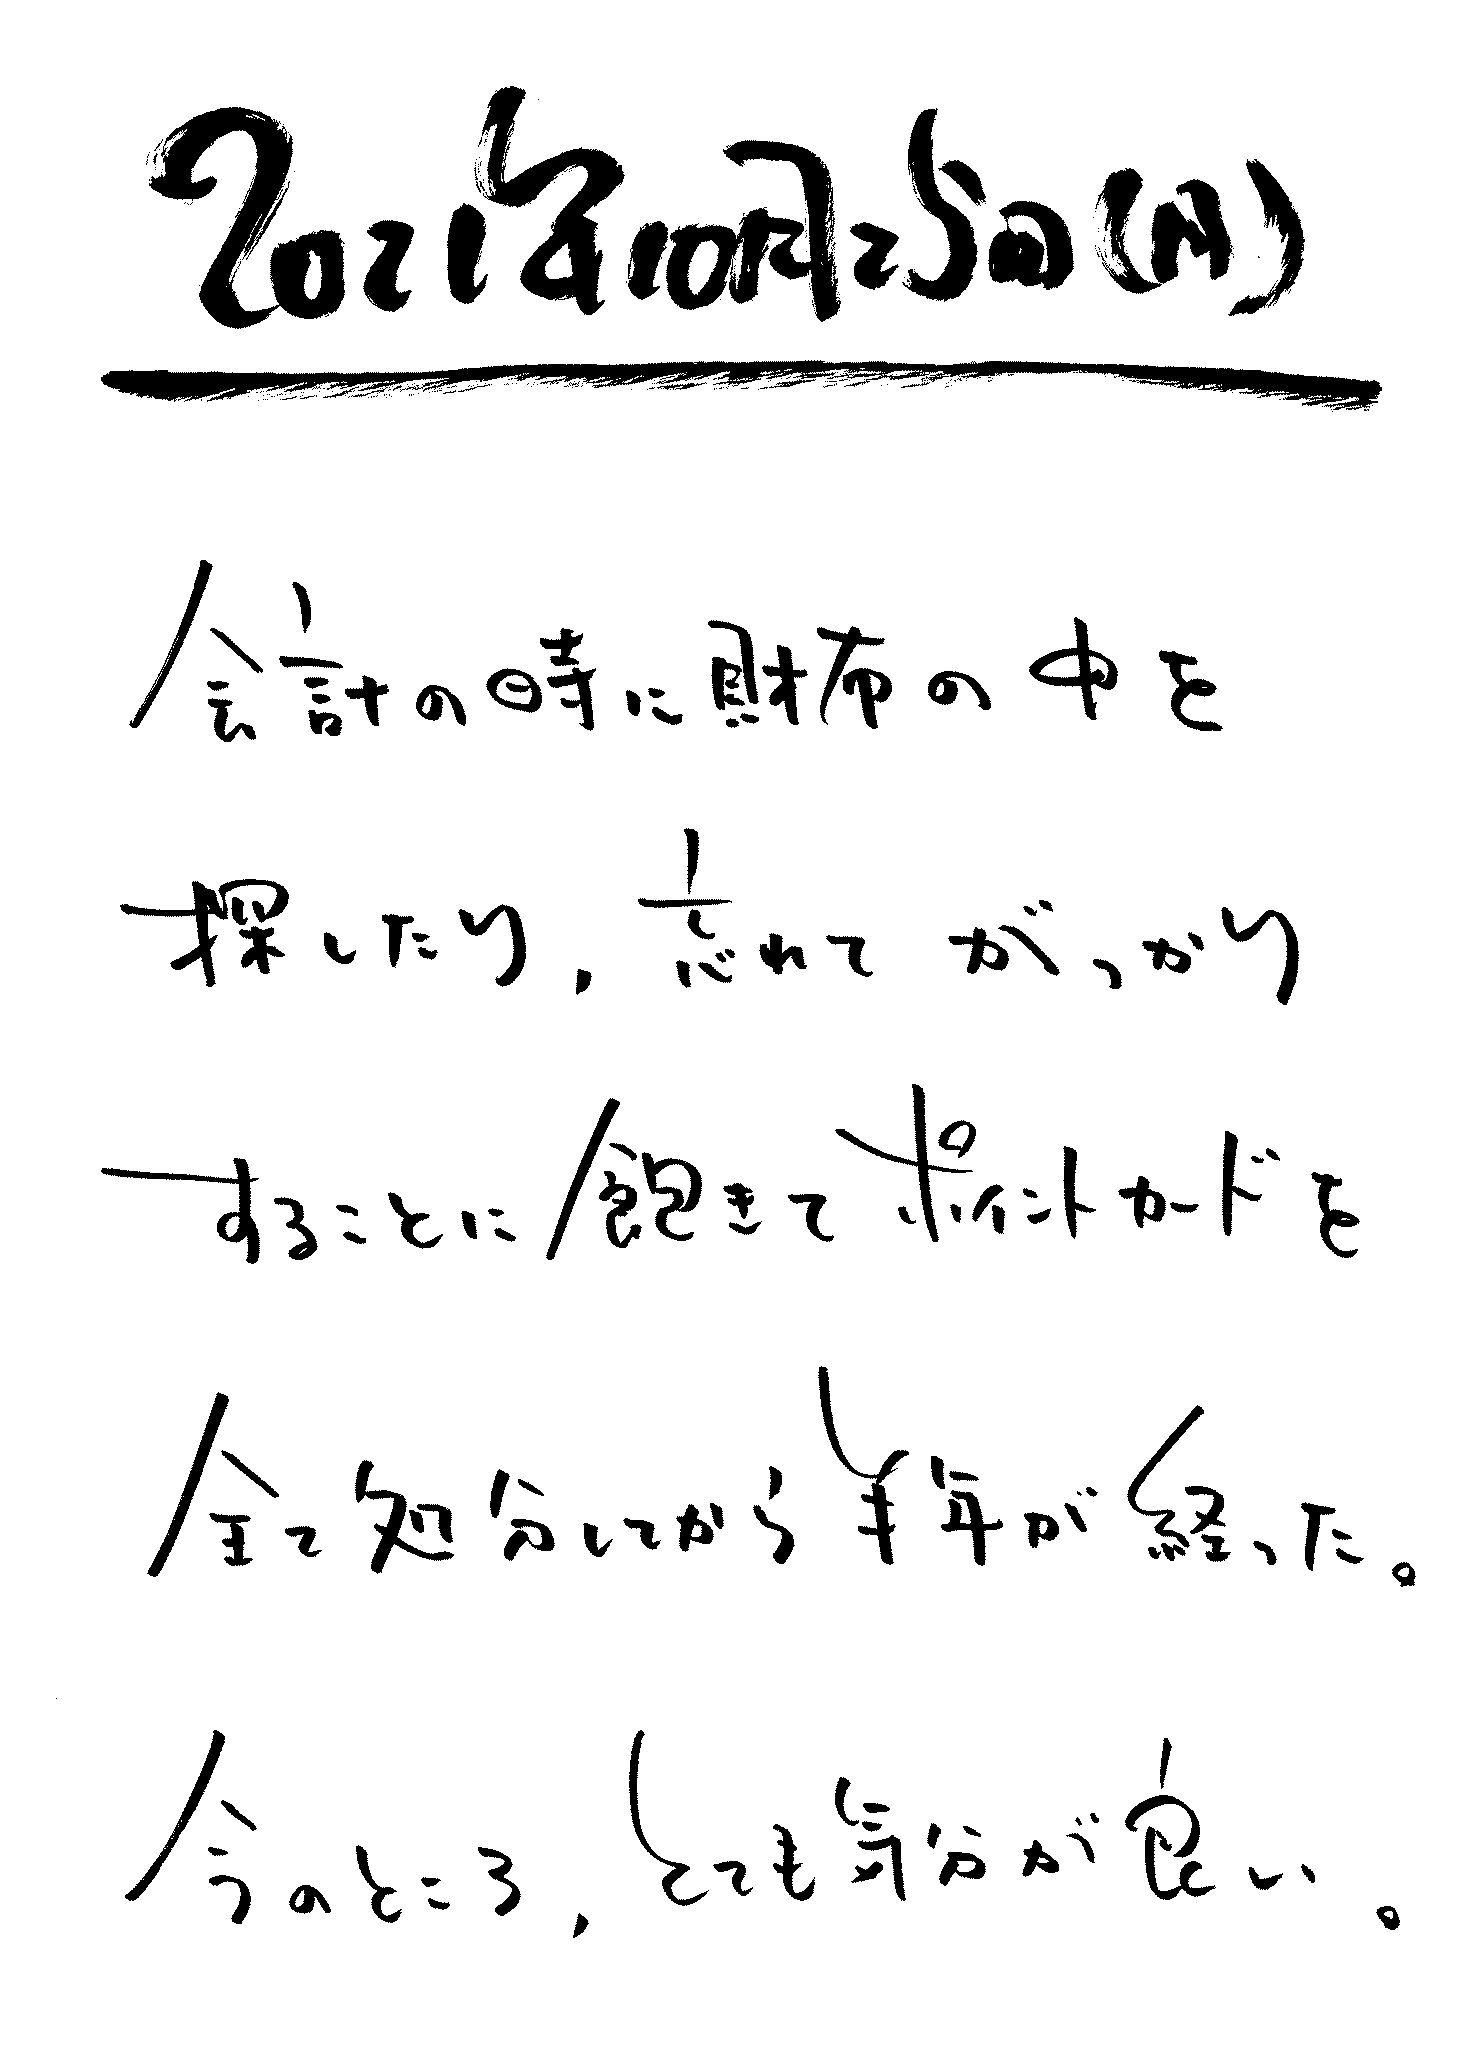 2021年10月25日(月)
会計の時に財布の中を
探したり,忘れてがっかり
することに飽きてポイントカードを
全て処分してから半年が経った。
今のところ,とても気分が良い。